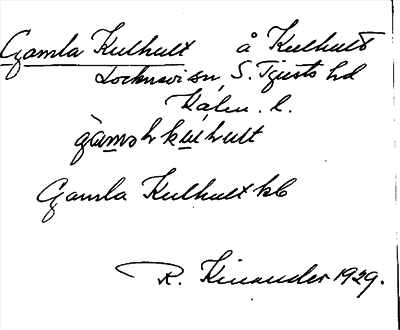 Gamla Kulhult å Kulhult
Locknevi sn, S. Tjusts hd
Kalm. l.
Gamla Kulhult kb
R. Kinander 1929.